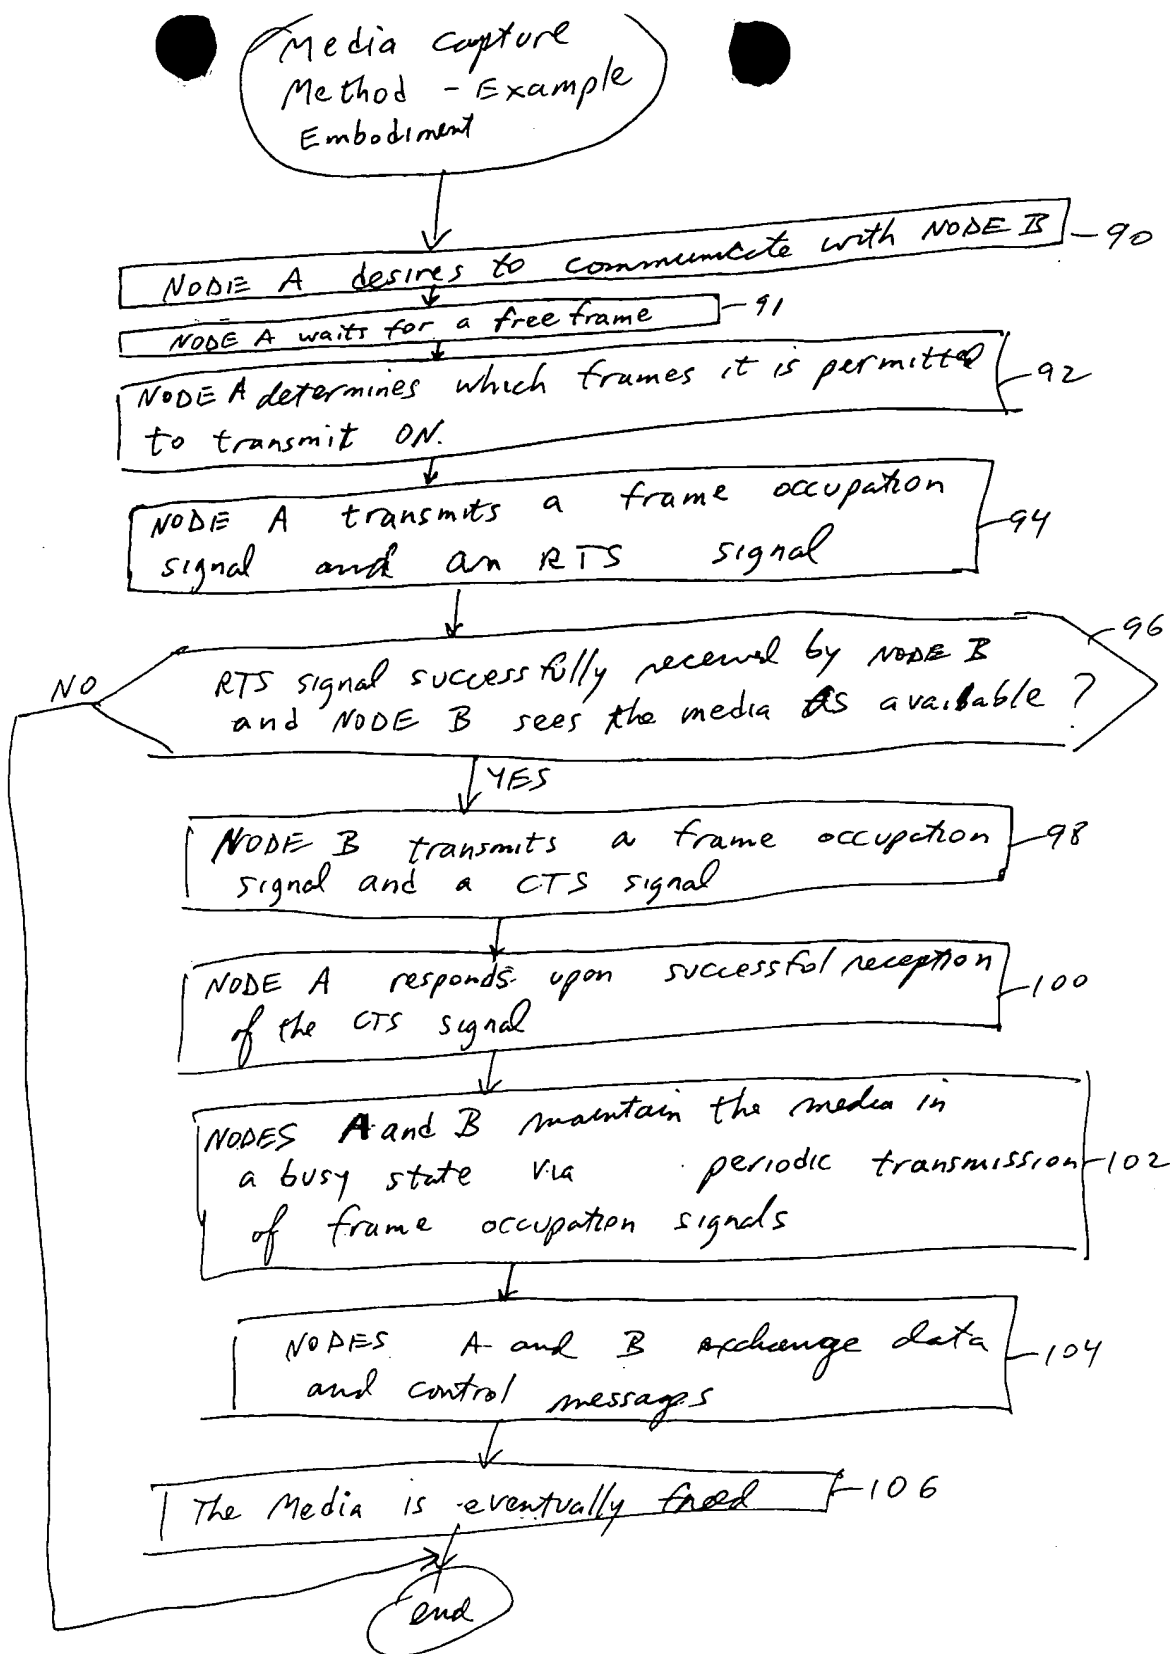 Media Capture
Method - Example
Embodiment
NODE A desires to communicate with NODE B
90
NODE A waits for a free frame
91
NODE A determines which frames it is permitted
to transmit ON.
92
NODE A transmits a frame occupation
signal and an RTS signal
94
RTS signal successfully received by NODE B
and NODE B sees the media as available ?
96
NO
YES
NODE B transmits a frame occupation
signal and a CTS signal
98
NODE A responds upon successful reception
of the CTS signal
100
NODES A and B maintain the media in
a busy state via periodic transmission
of frame occupation signals
102
NODES A and B exchange data
and control messages
104
The Media is eventually freed
106
end